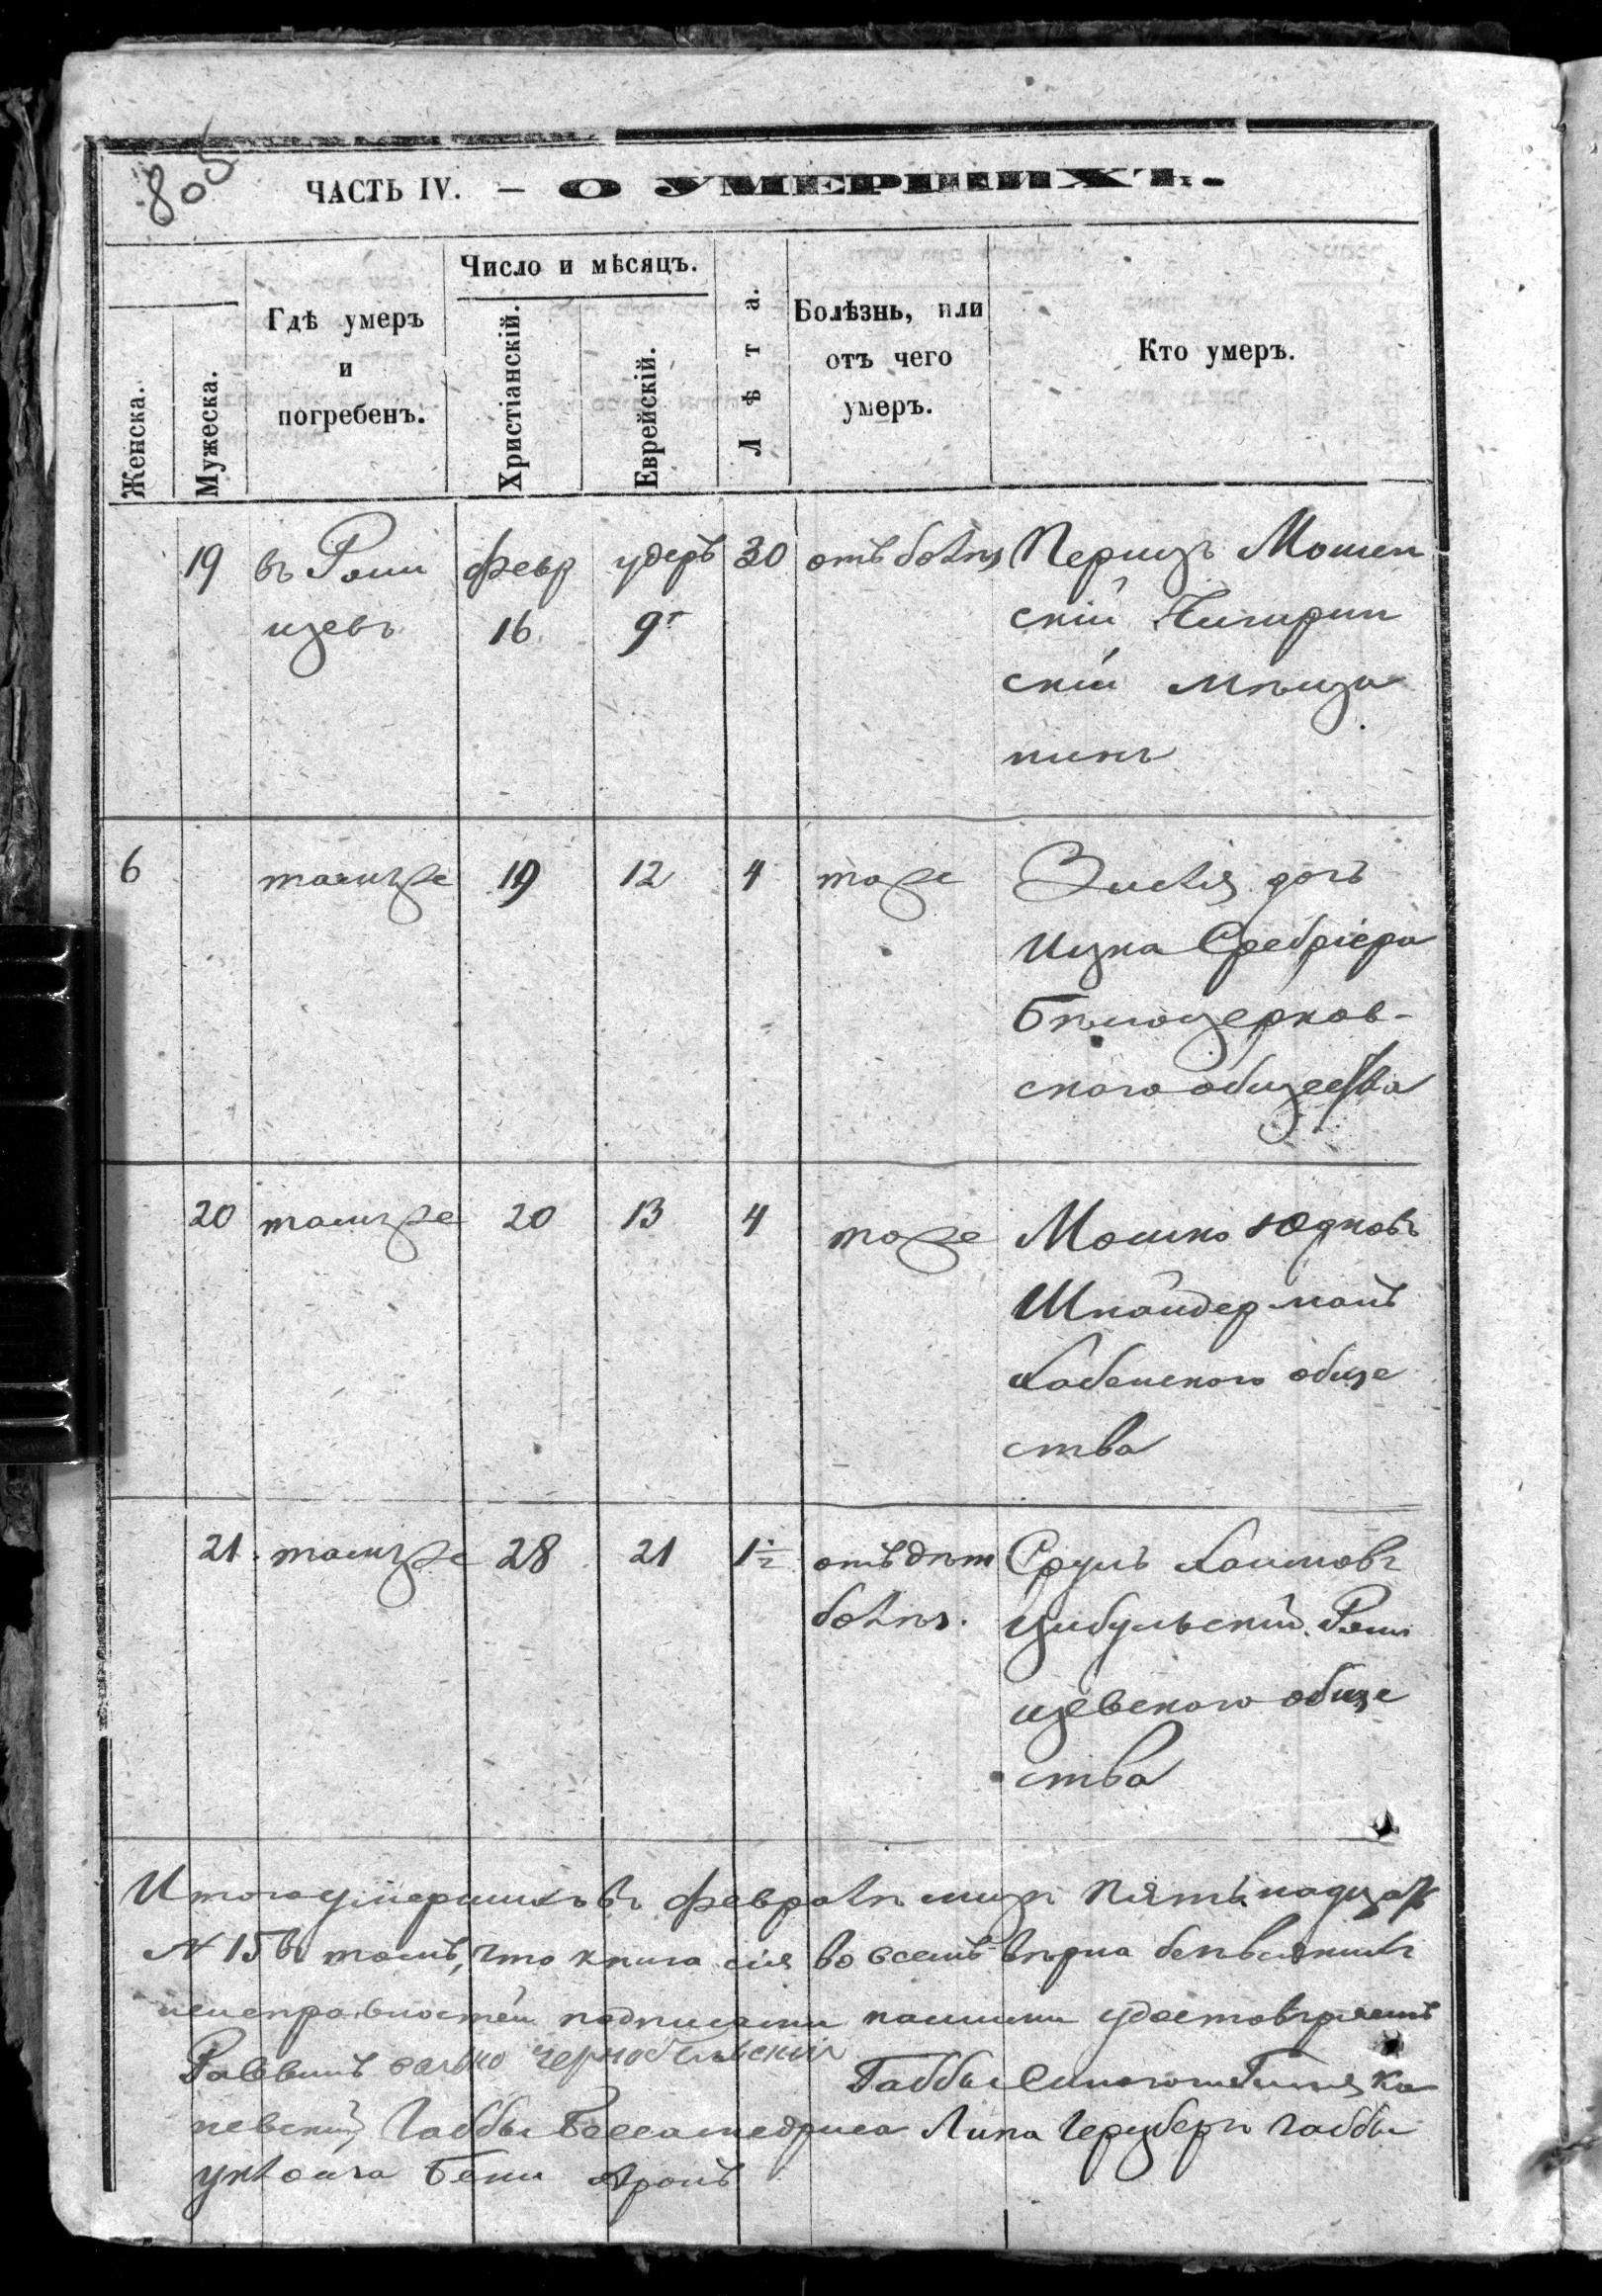 805
ЧАСТЬ IV. — О УМЕРШИХЪ.
Женска.
Мужеска.
Гдѣ умеръ
и
погребенъ.
Число и мѣсяцъ.
Христіанскій.
Еврейскій.
Лѣта.
Болѣзнь, или
отъ чего
умеръ.
Кто умеръ.
19 въ Ржи февр адеръ 30 отъ болѣз Перецъ Мошен
щевъ 16 9 скій Чигирин
скій мѣща
нинъ
6 тамъже 19 12 4 тоже дочь
Ицка Сребріера
Бѣлоцерков-
ского общества
20 тамъже 20 13 4 тоже Мошко Юдковъ
Шнайдерманъ
Хабенского обще
ства
21 тамъже 28 21 1 1/2 отъ дѣт Сруль Хаимовъ
болѣз. Цибульскій Ржи
щевского обще
ства
Итого умершихъ въ февралѣ мцѣ пятьнадцать
N 15 въ томъ, что книга сія во всемъ вѣрна безъ всякихъ
неисправностей подписями нашими удостовѣряемъ
Раввинъ Чернобильскій Габбы Ка
невский, Габбы Бесгамедриса Липа Герцберг габбы
Бени Аронъ